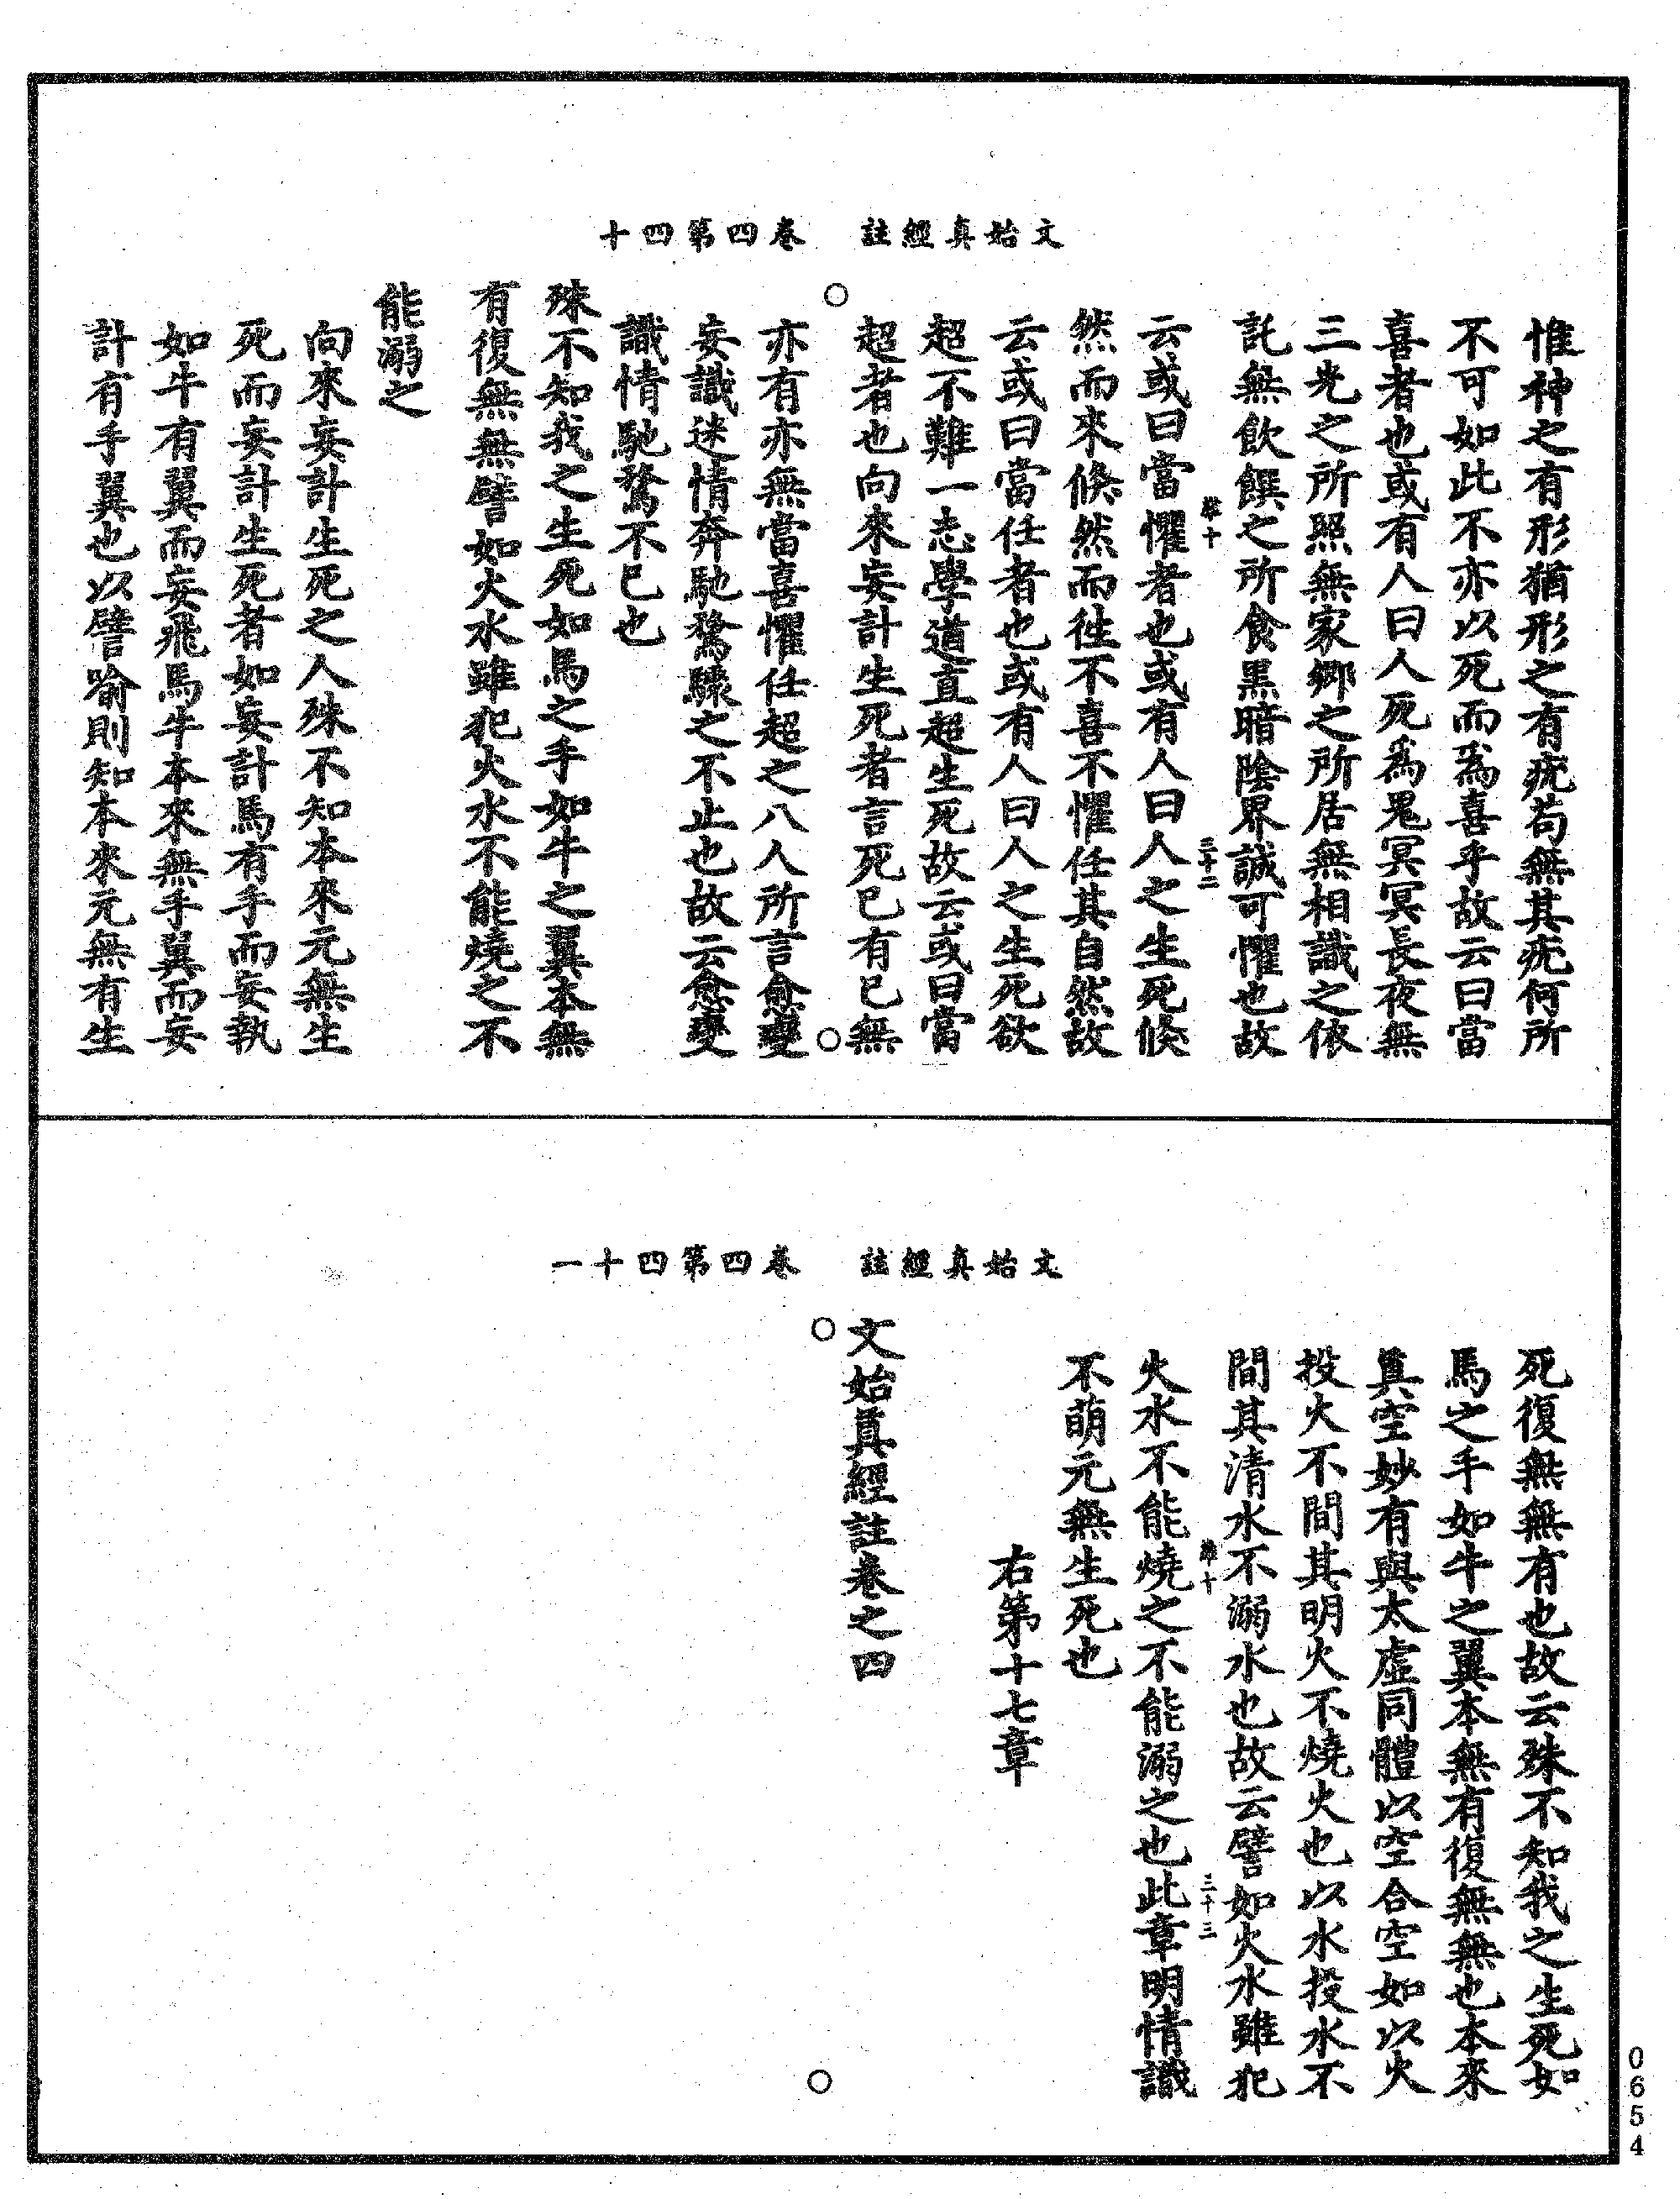 文始真經註　卷四第四十
惟神之有形猶形之有疣苟無其疣何所
不可如此不亦以死而為喜乎故云曰當
喜者也或有人曰人死為鬼冥冥長夜無
三光之所照無家鄉之所居無相識之依
託無飲饌之所食黑暗陰界誠可懼也故
十
三十二
云或曰當懼者也或有人曰人之生死倏
然而來倏然而往不喜不懼任其自然故
云或曰當任者也或有人曰人之生死欲
超不難一志學道直超生死故云或曰當
超者也向來妄計生死者言死已有已無
亦有亦無當喜懼任超之八人所言愈變
妄識迷情奔馳騖驟之不止也故云愈變
識情馳騖不已也
殊不知我之生死如馬之手如牛之翼本無
有復無無譬如火水雖犯火水不能燒之不
能溺之
向來妄計生死之人殊不知本來元無生
死而妄計生死者如妄計馬有手而妄執
如牛有翼而妄飛馬牛本來無手翼而妄
計有手翼也以譬喻則知本來元無有生
文始真經註　卷四第四十一
死復無無有也故云殊不知我之生死如
馬之手如牛之翼本無有復無無也本來
真空妙有與太虛同體以空合空如以火
投火不間其明火不燒火也以水投水不
間其清水不溺水也故云譬如火水雖犯
十
三十三
火水不能燒之不能溺之也此章明情識
不萌元無生死也
右第十七章
文始真經註卷之四
0654